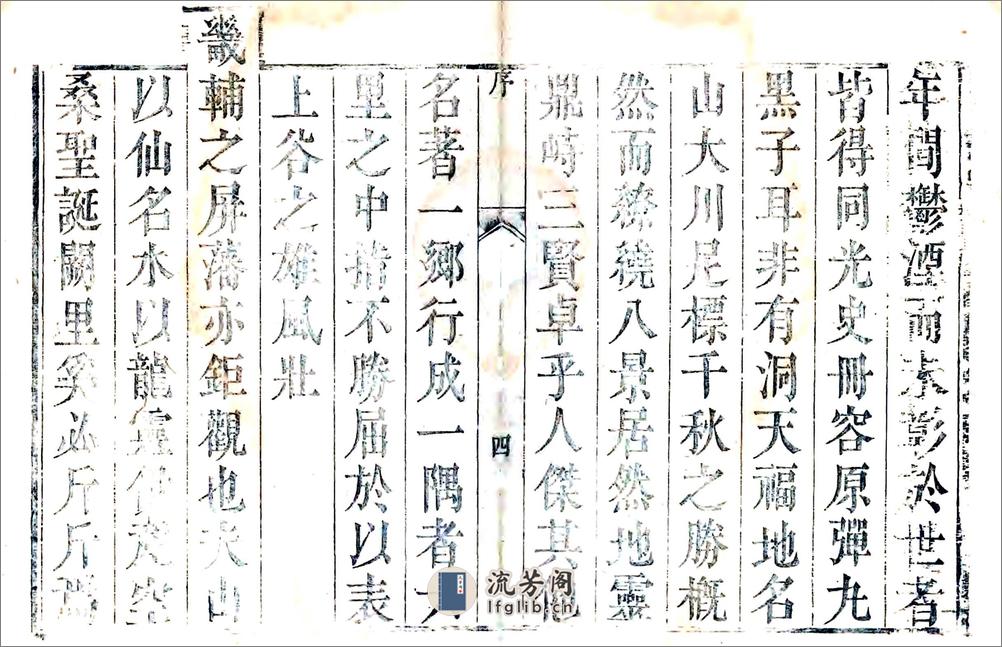 年間鬱湮而未彰於世者
皆得同光史冊容原彈丸
黑子耳非有洞天福地名
山大川足標千秋之勝概
然而繚繞八景居然地靈
鼎峙三賢卓乎人傑其他
序
四
名著一鄉行成一隅者
里之中指不勝屈於以表
上谷之雄風壯
畿輔之屏藩亦鉅觀也夫山
以仙名水以龍靈
桑聖誕闕里奚必斤斤
流芳阁
lfglib.cn